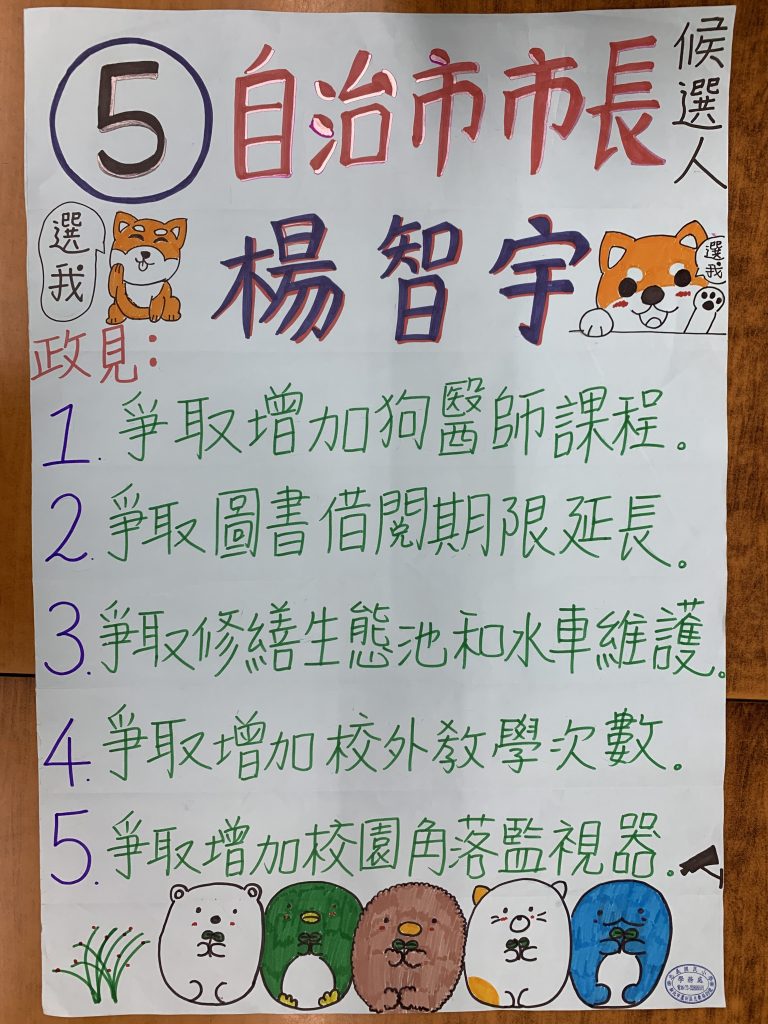 5 自治市市長 候選人
選我
楊智宇
選我
政見：
1. 爭取增加狗醫師課程。
2. 爭取圖書借閱期限延長。
3. 爭取修繕生態池和水車維護。
4. 爭取增加校外教學次數。
5. 爭取增加校園角落監視器。
學務處